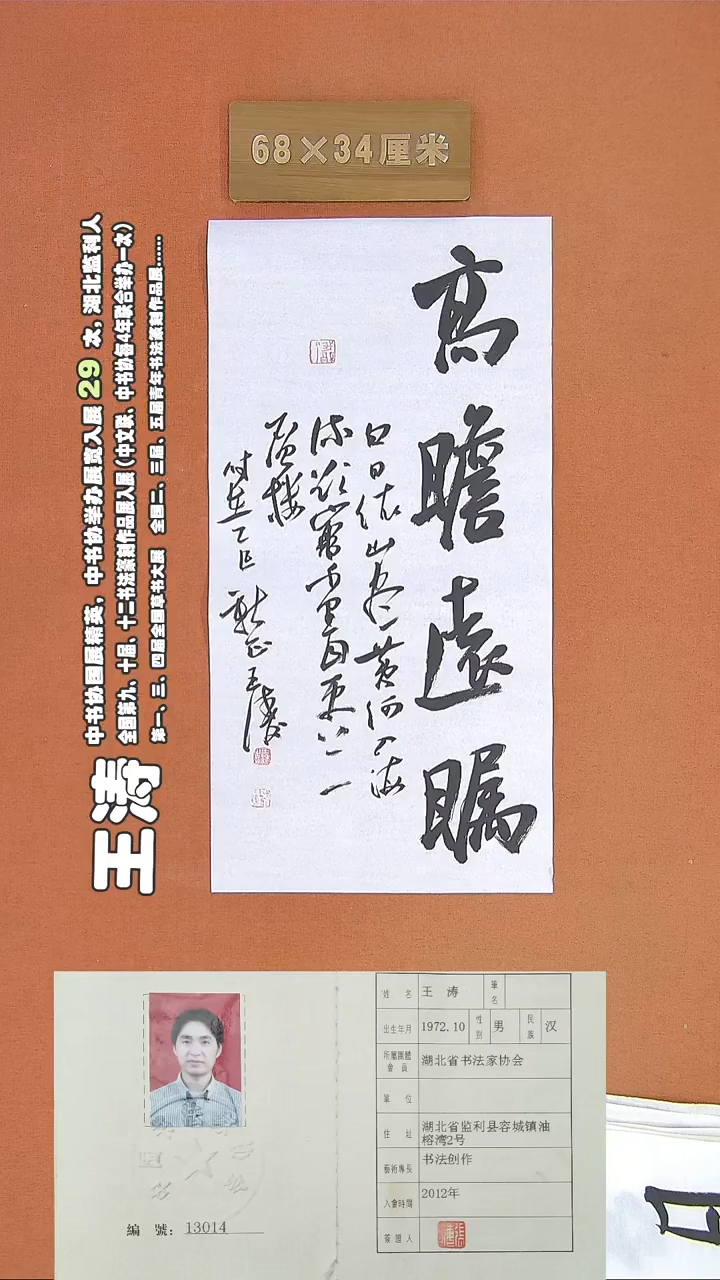 68×34厘米
高瞻遠瞩
白日依山尽黄河入海
流欲穷千里目更上一
层楼
时在乙巳 新正 王涛
王涛
中书协国展精英,中书协举办展赛入展 29 次,湖北监利人
全国第九、十届、十二书法篆刻作品展入展(中文联、中书协每4年联合举办一次)
第一、三、四届全国草书大展 全国二、三届、五届青年书法篆刻作品展……
編 號: 13014
姓 名 王 涛 筆名
出生年月 1972.10 性别 男 民族 汉
所屬團體會員 湖北省书法家协会
單 位
住 址 湖北省监利县容城镇油
榕湾2号
藝術專長 书法创作
入會時間 2012年
簽證人